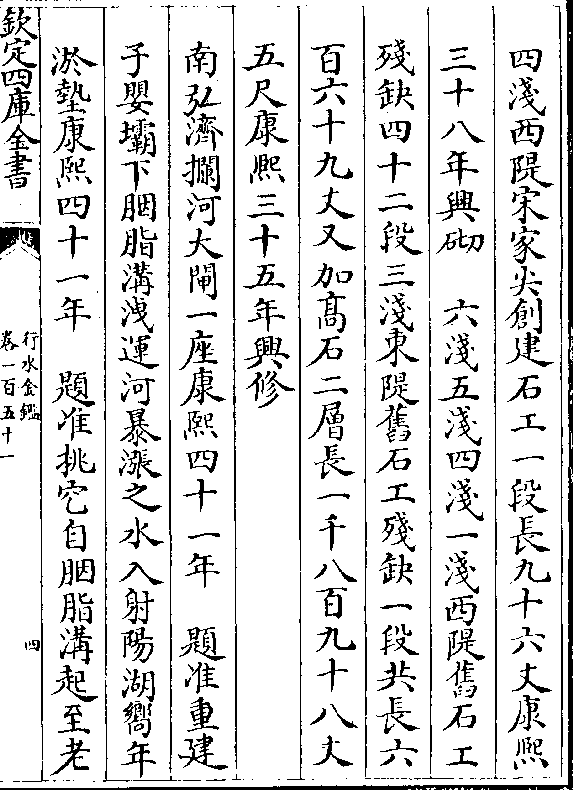 四淺西隄宋家尖創建石工一段長九十六丈康熙
三十八年興砌　六淺五淺四淺一淺西隄舊石工
殘缺四十二段三淺東隄舊石工殘缺一段共長六
百六十九丈又加高石二層長一千八百九十八丈
五尺康熙三十五年興修
南弘濟攔河大閘一座康熙四十一年　題准重建
子嬰壩下胭脂溝洩運河暴漲之水入射陽湖嚮年
淤墊康熙四十一年　題准挑空自胭脂溝起至老
欽定四庫全書
行水金鑑
卷一百五十一
四